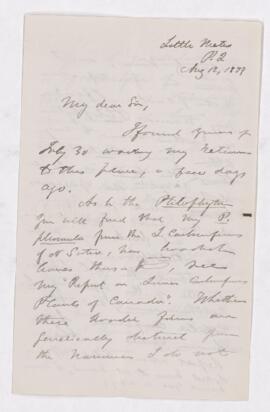 Little Metis
P. Q
Aug 12, 1879
My dear Sir,
I found yours of
July 30 waiting my return
to this place, a few days
ago.
As to the Ptilophyton
You will find that my P.
plumula from the L. Carboniferous
of N Scotia, has
leaves thus, see
my "Report on Lower Carboniferous
Plants of Canada". Whether
these broader forms are
generically distinct from
the narrower I do not